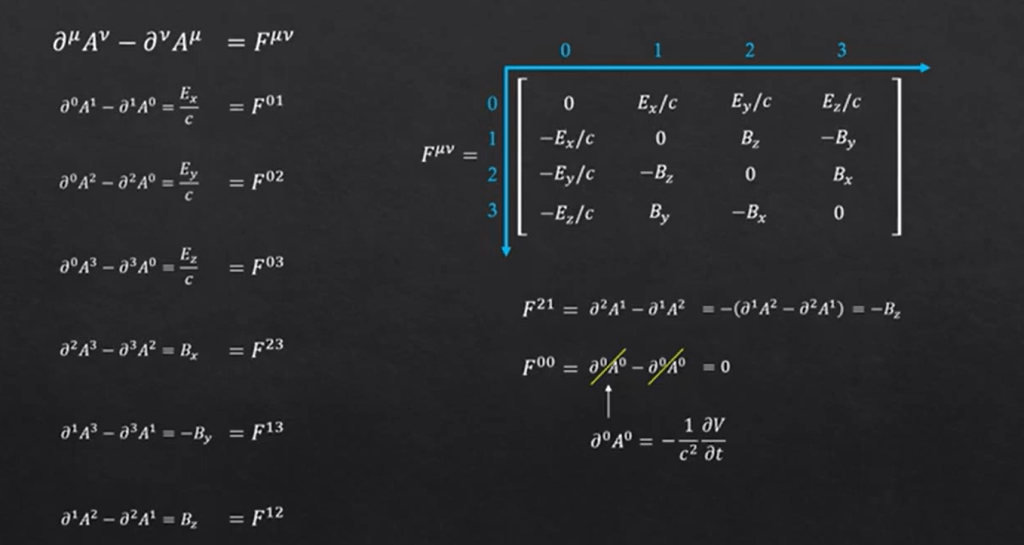 ∂^μA^ν − ∂^νA^μ = F^{μν}
∂⁰A¹ − ∂¹A⁰ = E_x/c = F^{01}
∂⁰A² − ∂²A⁰ = E_y/c = F^{02}
∂⁰A³ − ∂³A⁰ = E_z/c = F^{03}
∂²A³ − ∂³A² = B_x = F^{23}
∂¹A³ − ∂³A¹ = −B_y = F^{13}
∂¹A² − ∂²A¹ = B_z = F^{12}
0 1 2 3
0 0 E_x/c E_y/c E_z/c
1 −E_x/c 0 B_z −B_y
F^{μν} =
2 −E_y/c −B_z 0 B_x
3 −E_z/c B_y −B_x 0
F^{21} = ∂²A¹ − ∂¹A² = −(∂¹A² − ∂²A¹) = −B_z
F^{00} = ∂⁰A⁰ − ∂⁰A⁰ = 0
∂⁰A⁰ = − 1/c² ∂V/∂t